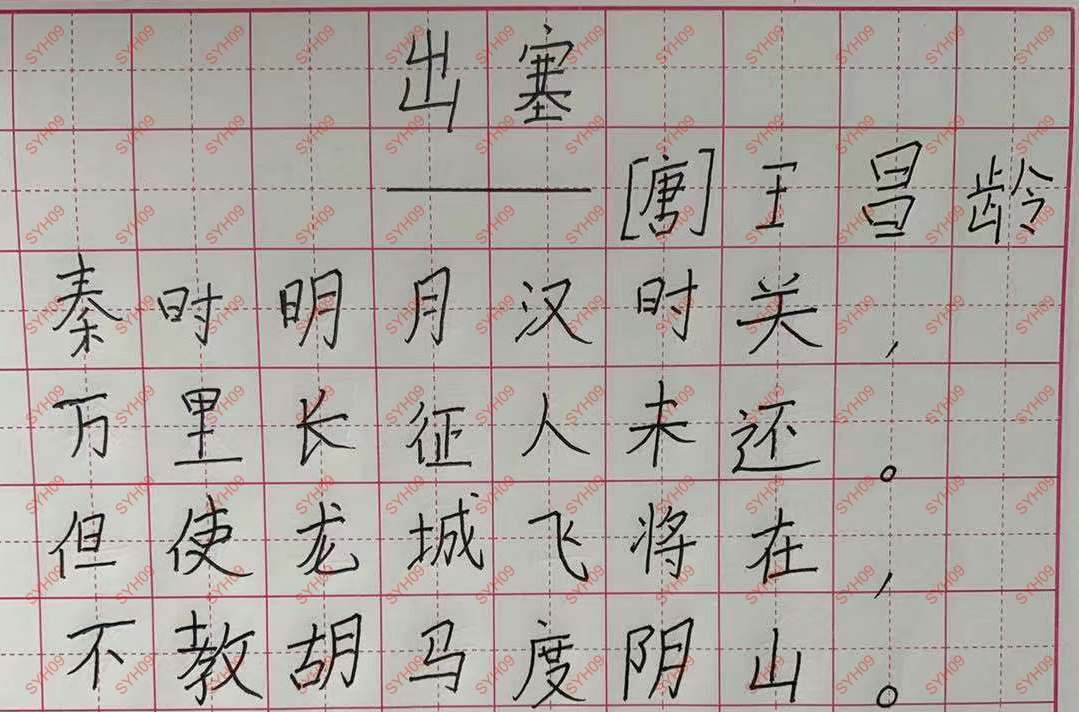 出塞
——[唐]王昌龄
秦时明月汉时关，
万里长征人未还。
但使龙城飞将在，
不教胡马度阴山。